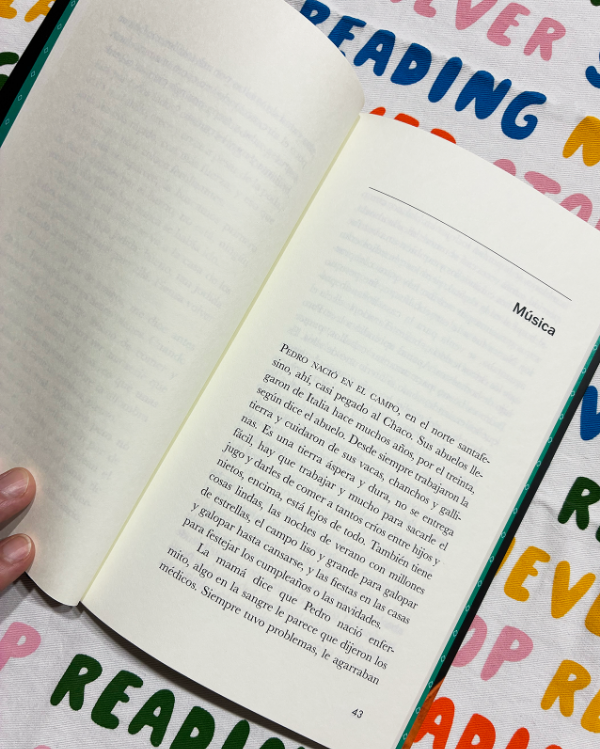 EVER
READING
Música
PEDRO NACIÓ EN EL CAMPO, en el norte santafe-
sino, ahí, casi pegado al Chaco. Sus abuelos lle-
garon de Italia hace muchos años, por el treinta,
según dice el abuelo. Desde siempre trabajaron la
tierra y cuidaron de sus vacas, chanchos y galli-
nas. Es una tierra áspera y dura, no se entrega
fácil, hay que trabajar y mucho para sacarle el
jugo y darles de comer a tantos críos entre hijos y
nietos, encima, está lejos de todo. También tiene
cosas lindas, las noches de verano con millones
de estrellas, el campo liso y grande para galopar
y galopar hasta cansarse, y las fiestas en las casas
para festejar los cumpleaños o las navidades.
La mamá dice que Pedro nació enfer-
mito, algo en la sangre le parece que dijeron los
médicos. Siempre tuvo problemas, le agarraban
43
EVER
OP
READING